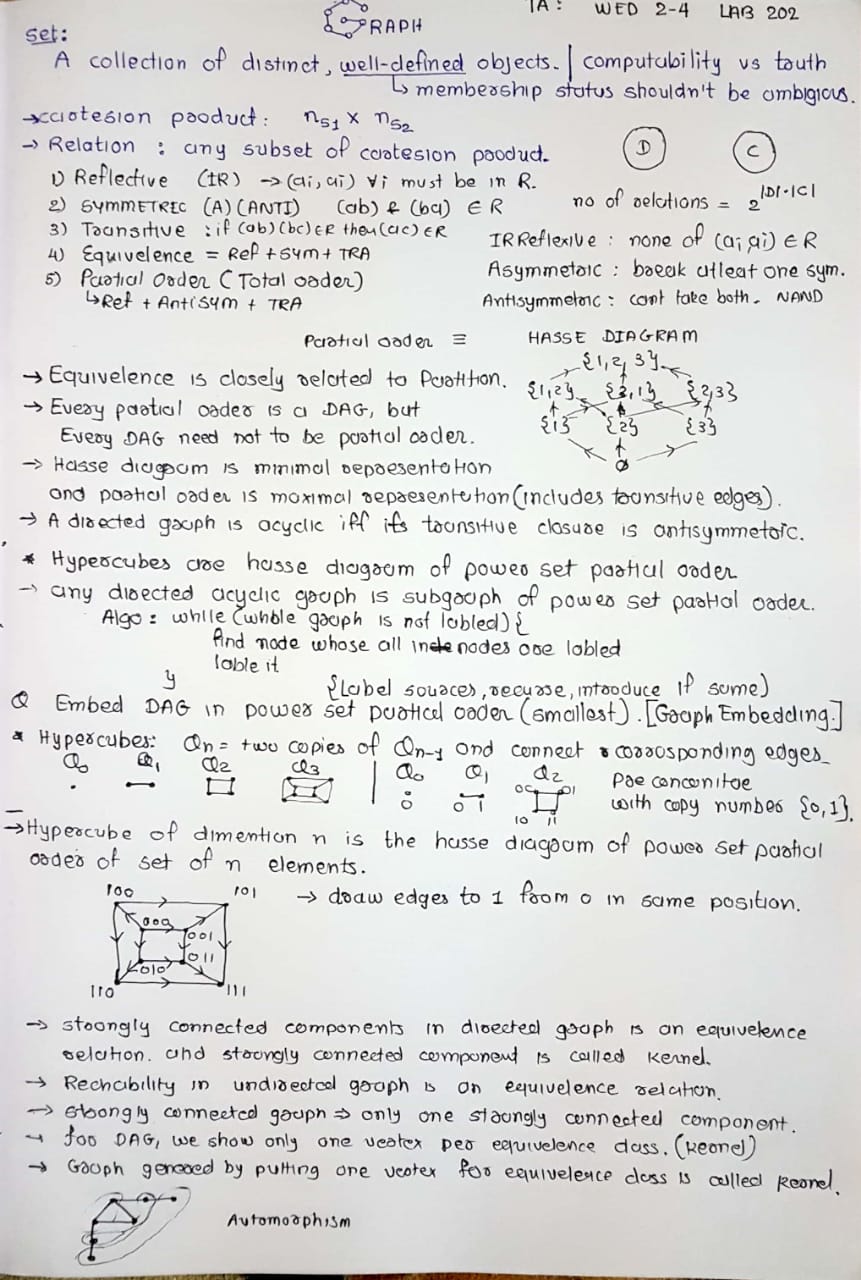 GRAPH
TA: WED 2-4 LAB 202
set:
A collection of distinct, well-defined objects. | computability vs touth
↳ membership status shouldn't be ambigious.
→ cartesion product: n_S1 × n_S2
→ Relation : any subset of cartesion product.
D C
1) Reflective (IR) → (ai, ai) ∀i must be in R.
no of relations = 2^|D|·|C|
2) SYMMETRIC (A) (ANTI) (ab) & (ba) ∈ R
3) Transitive : if (ab) (bc) ∈ R then (ac) ∈ R
IRReflexive : none of (ai ai) ∈ R
4) Equivelence = Ref + sym + TRA
Asymmetric : break atleat one sym.
5) Partial Order (Total order)
↳ Ref + Antisym + TRA
Antisymmetric : cant take both. NAND
Partial order ≡ HASSE DIAGRAM
{1,2,3}
{1,2} {3,1} {2,3}
{1} {2} {3}
∅
→ Equivelence is closely related to Partition.
→ Every partial order is a DAG, but
Every DAG need not to be partial order.
→ Hasse diagram is minimal representation
and partial order is maximal representation (includes transitive edges).
→ A directed graph is acyclic iff its transitive closure is antisymmetric.
* Hypercubes are hasse diagram of power set partial order
→ any directed acyclic graph is subgraph of power set partial order.
Algo : while (whole graph is not labled) {
find node whose all inde nodes are labled
lable it
}
{Label sources, recurse, introduce if same)
Q Embed DAG in power set partical order (smallest). [Graph Embedding.]
* Hypercubes: Qn = two copies of Qn-1 and connect corrosponding edges
Q0 Q1 Q2 Q3 | Q0 Q1 Q2
Pre concanitae
with copy number {0,1}.
0 0 1 00 01
10 11
→ Hypercube of dimention n is the hasse diagram of power set partial
order of set of n elements.
100 101
→ draw edges to 1 from 0 in same position.
000 001
010 011
110 111
→ stoongly connected components in directed graph is an equivelence
relation. and strongly connected component is called kernel.
→ Rechability in undirected graph is an equivelence relation.
→ strongly connected graph ⇒ only one strongly connected component.
→ for DAG, we show only one vertex per equivelence class. (kernel)
→ Graph genered by putting one vertex for equivelence class is called kernel.
Automorphism